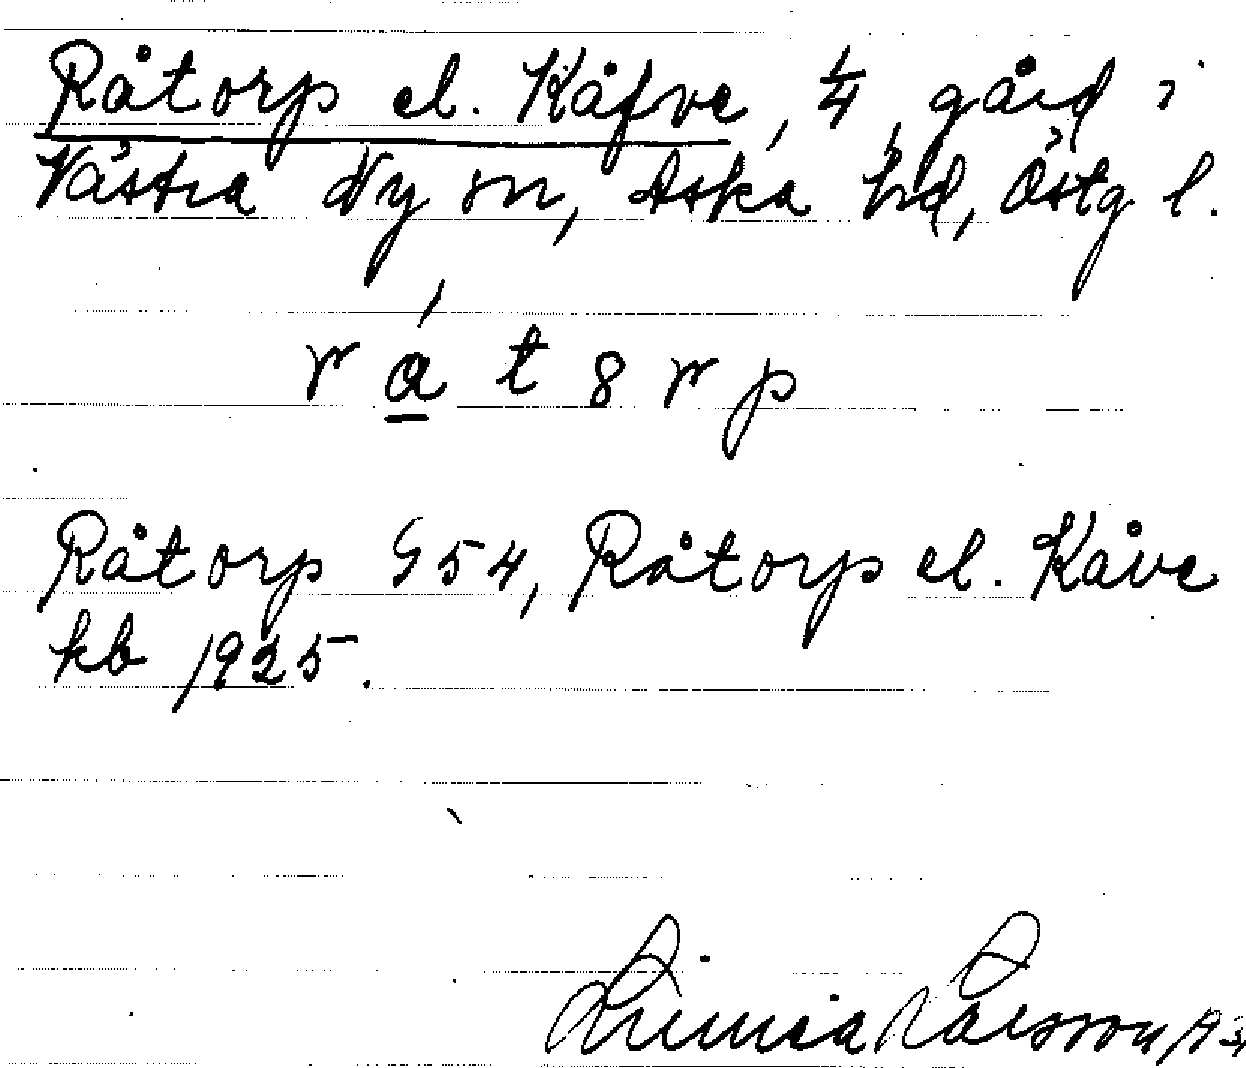 Råtorp el. Kåfve, 1/4, gård i
Västra Ny sn, Aska hd, Östg l.
r á t 8 r p
Råtorp G54, Råtorp el. Kåve
kb 1925.
Linnéa Larsson